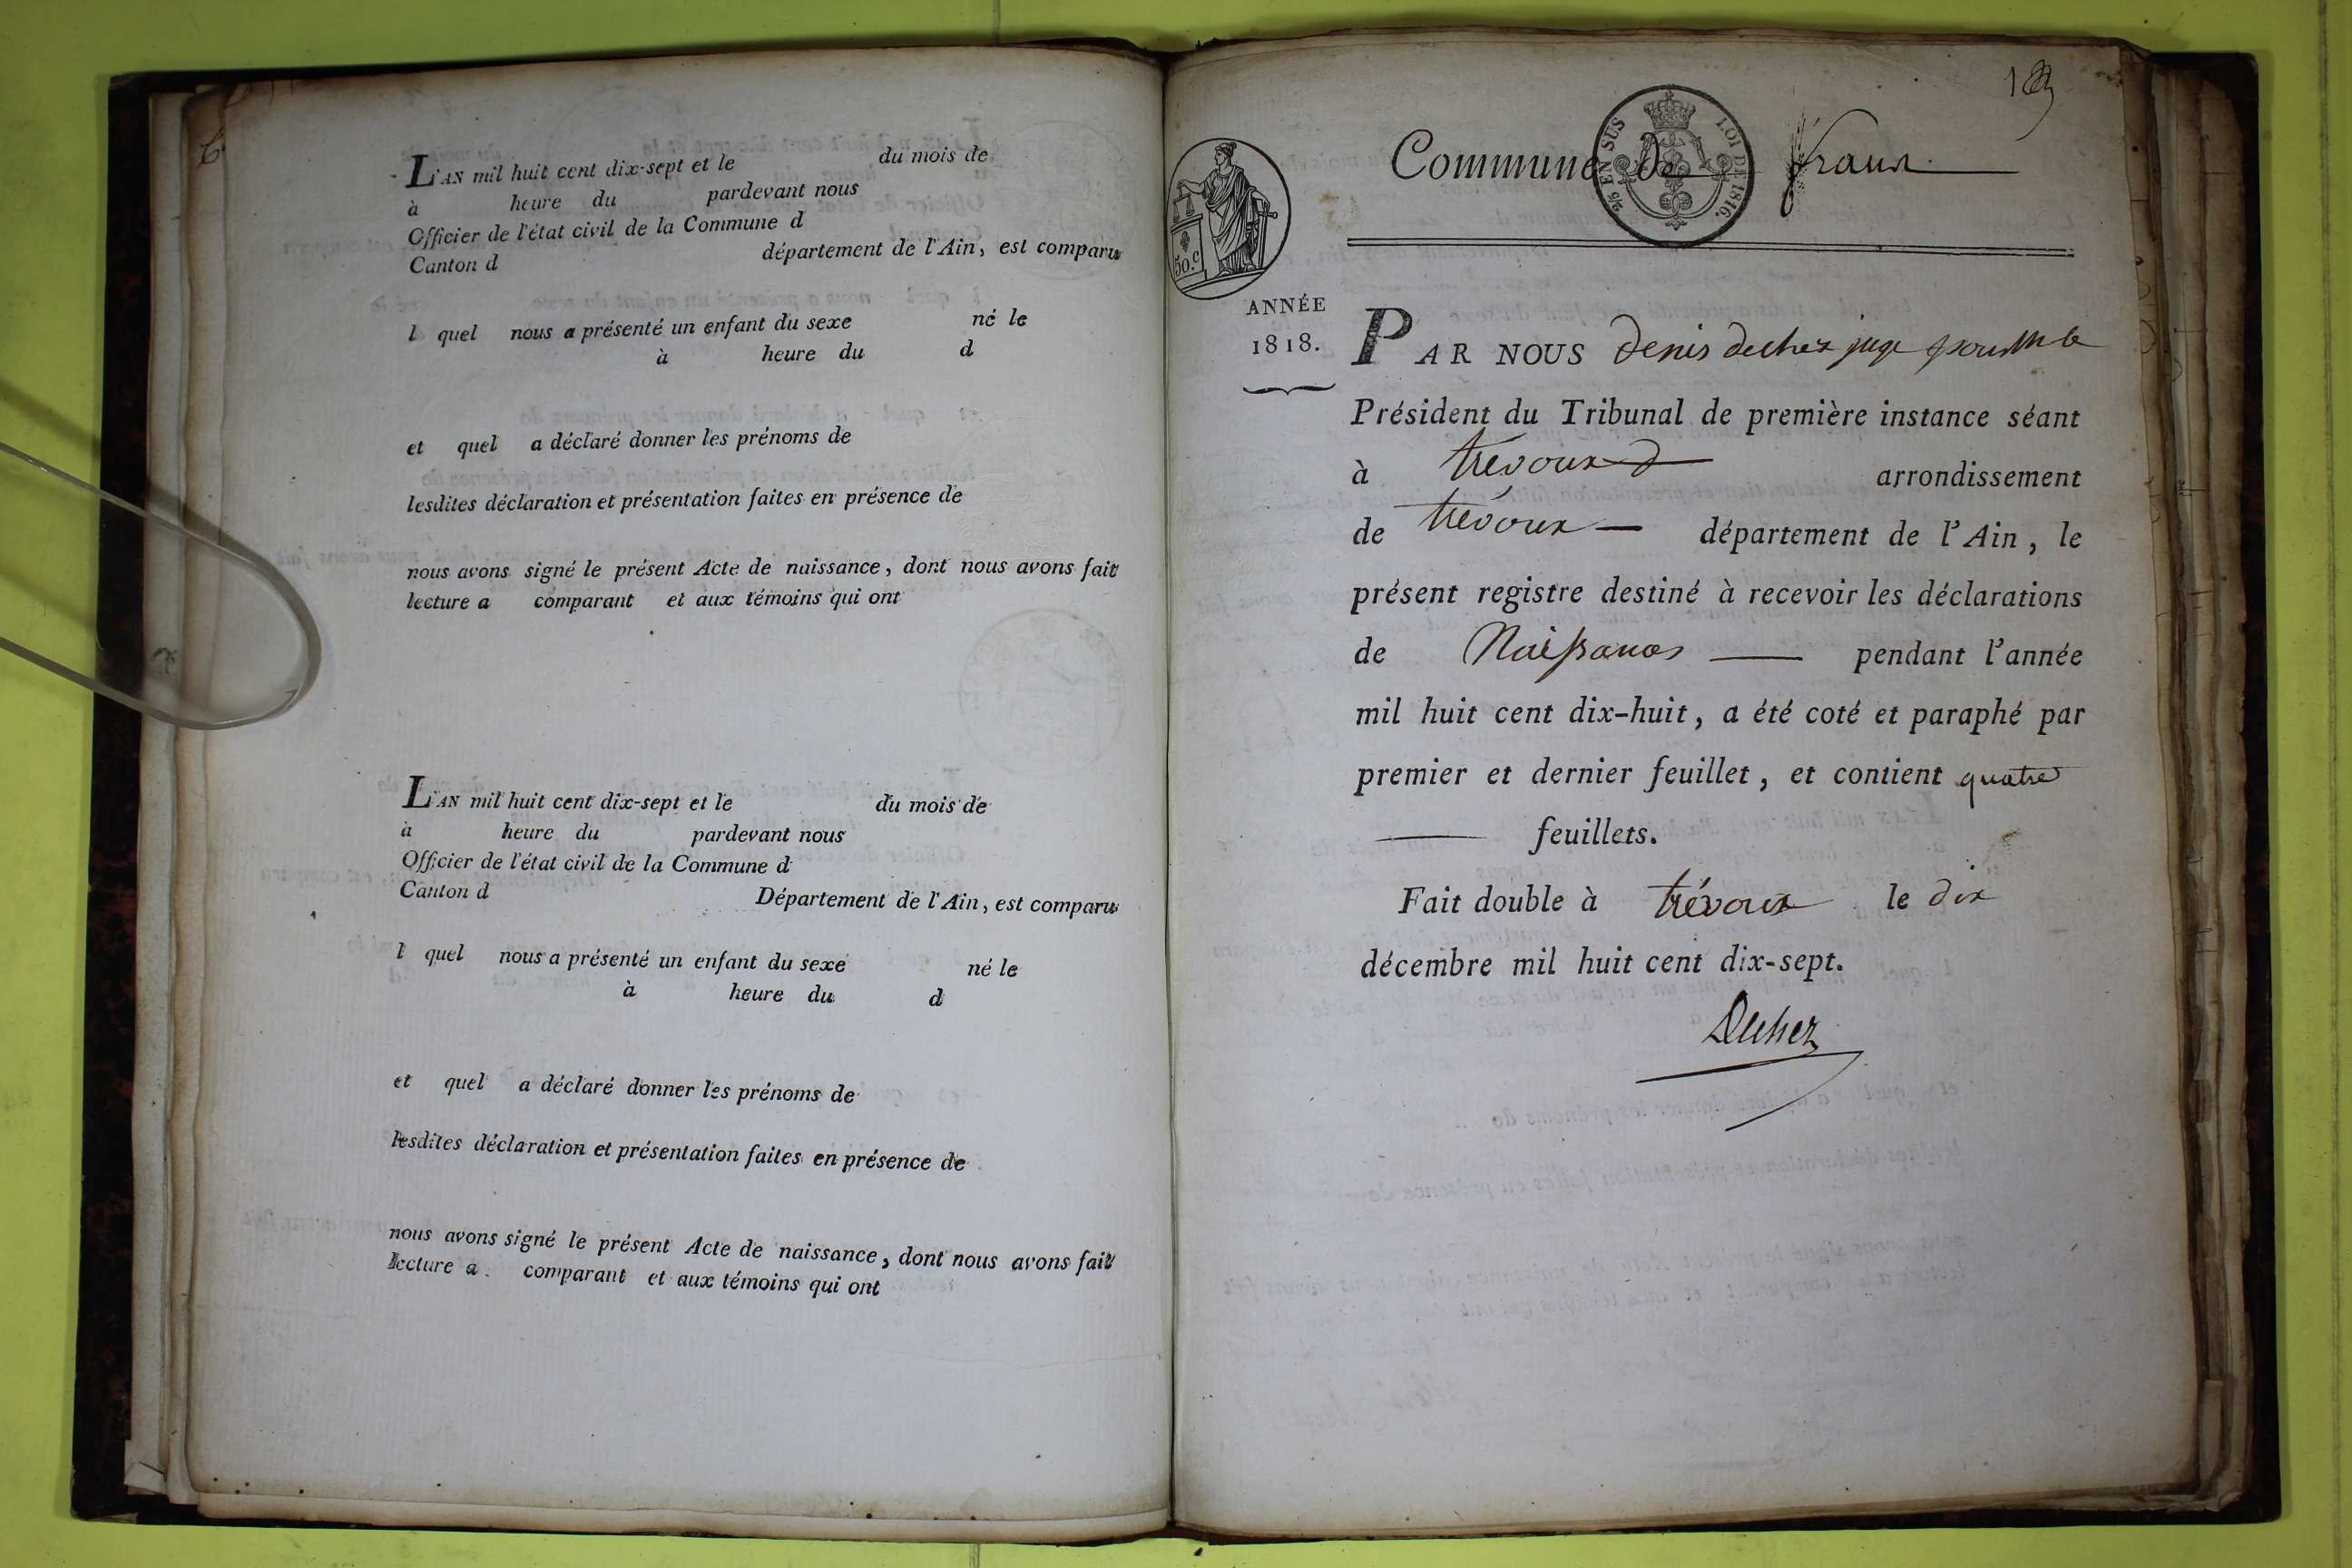 L'AN mil huit cent dix-sept et le du mois de
à heure du pardevant nous
Officier de l'état civil de la Commune d
Canton d département de l'Ain, est comparu
l quel nous a présenté un enfant du sexe né le
à heure du d
et quel a déclaré donner les prénoms de
lesdites déclaration et présentation faites en présence de
nous avons signé le présent Acte de naissance, dont nous avons fait
lecture a comparant et aux témoins qui ont
L'AN mil huit cent dix-sept et le du mois de
à heure du pardevant nous
Officier de l'état civil de la Commune d
Canton d Département de l'Ain, est comparu
l quel nous a présenté un enfant du sexe né le
à heure du d
et quel a déclaré donner les prénoms de
lesdites déclaration et présentation faites en présence de
nous avons signé le présent Acte de naissance, dont nous avons fait
lecture a comparant et aux témoins qui ont
Commune de frans
EN SUS LOI DE 1816.
50.c
ANNÉE
1818.
PAR NOUS Denis dechez juge pour Mr le
Président du Tribunal de première instance séant
à trévoux arrondissement
de trévoux — département de l'Ain, le
présent registre destiné à recevoir les déclarations
de Naissances — pendant l'année
mil huit cent dix-huit, a été coté et paraphé par
premier et dernier feuillet, et contient quatre
— feuillets.
Fait double à trévoux le dix
décembre mil huit cent dix-sept.
Dechez